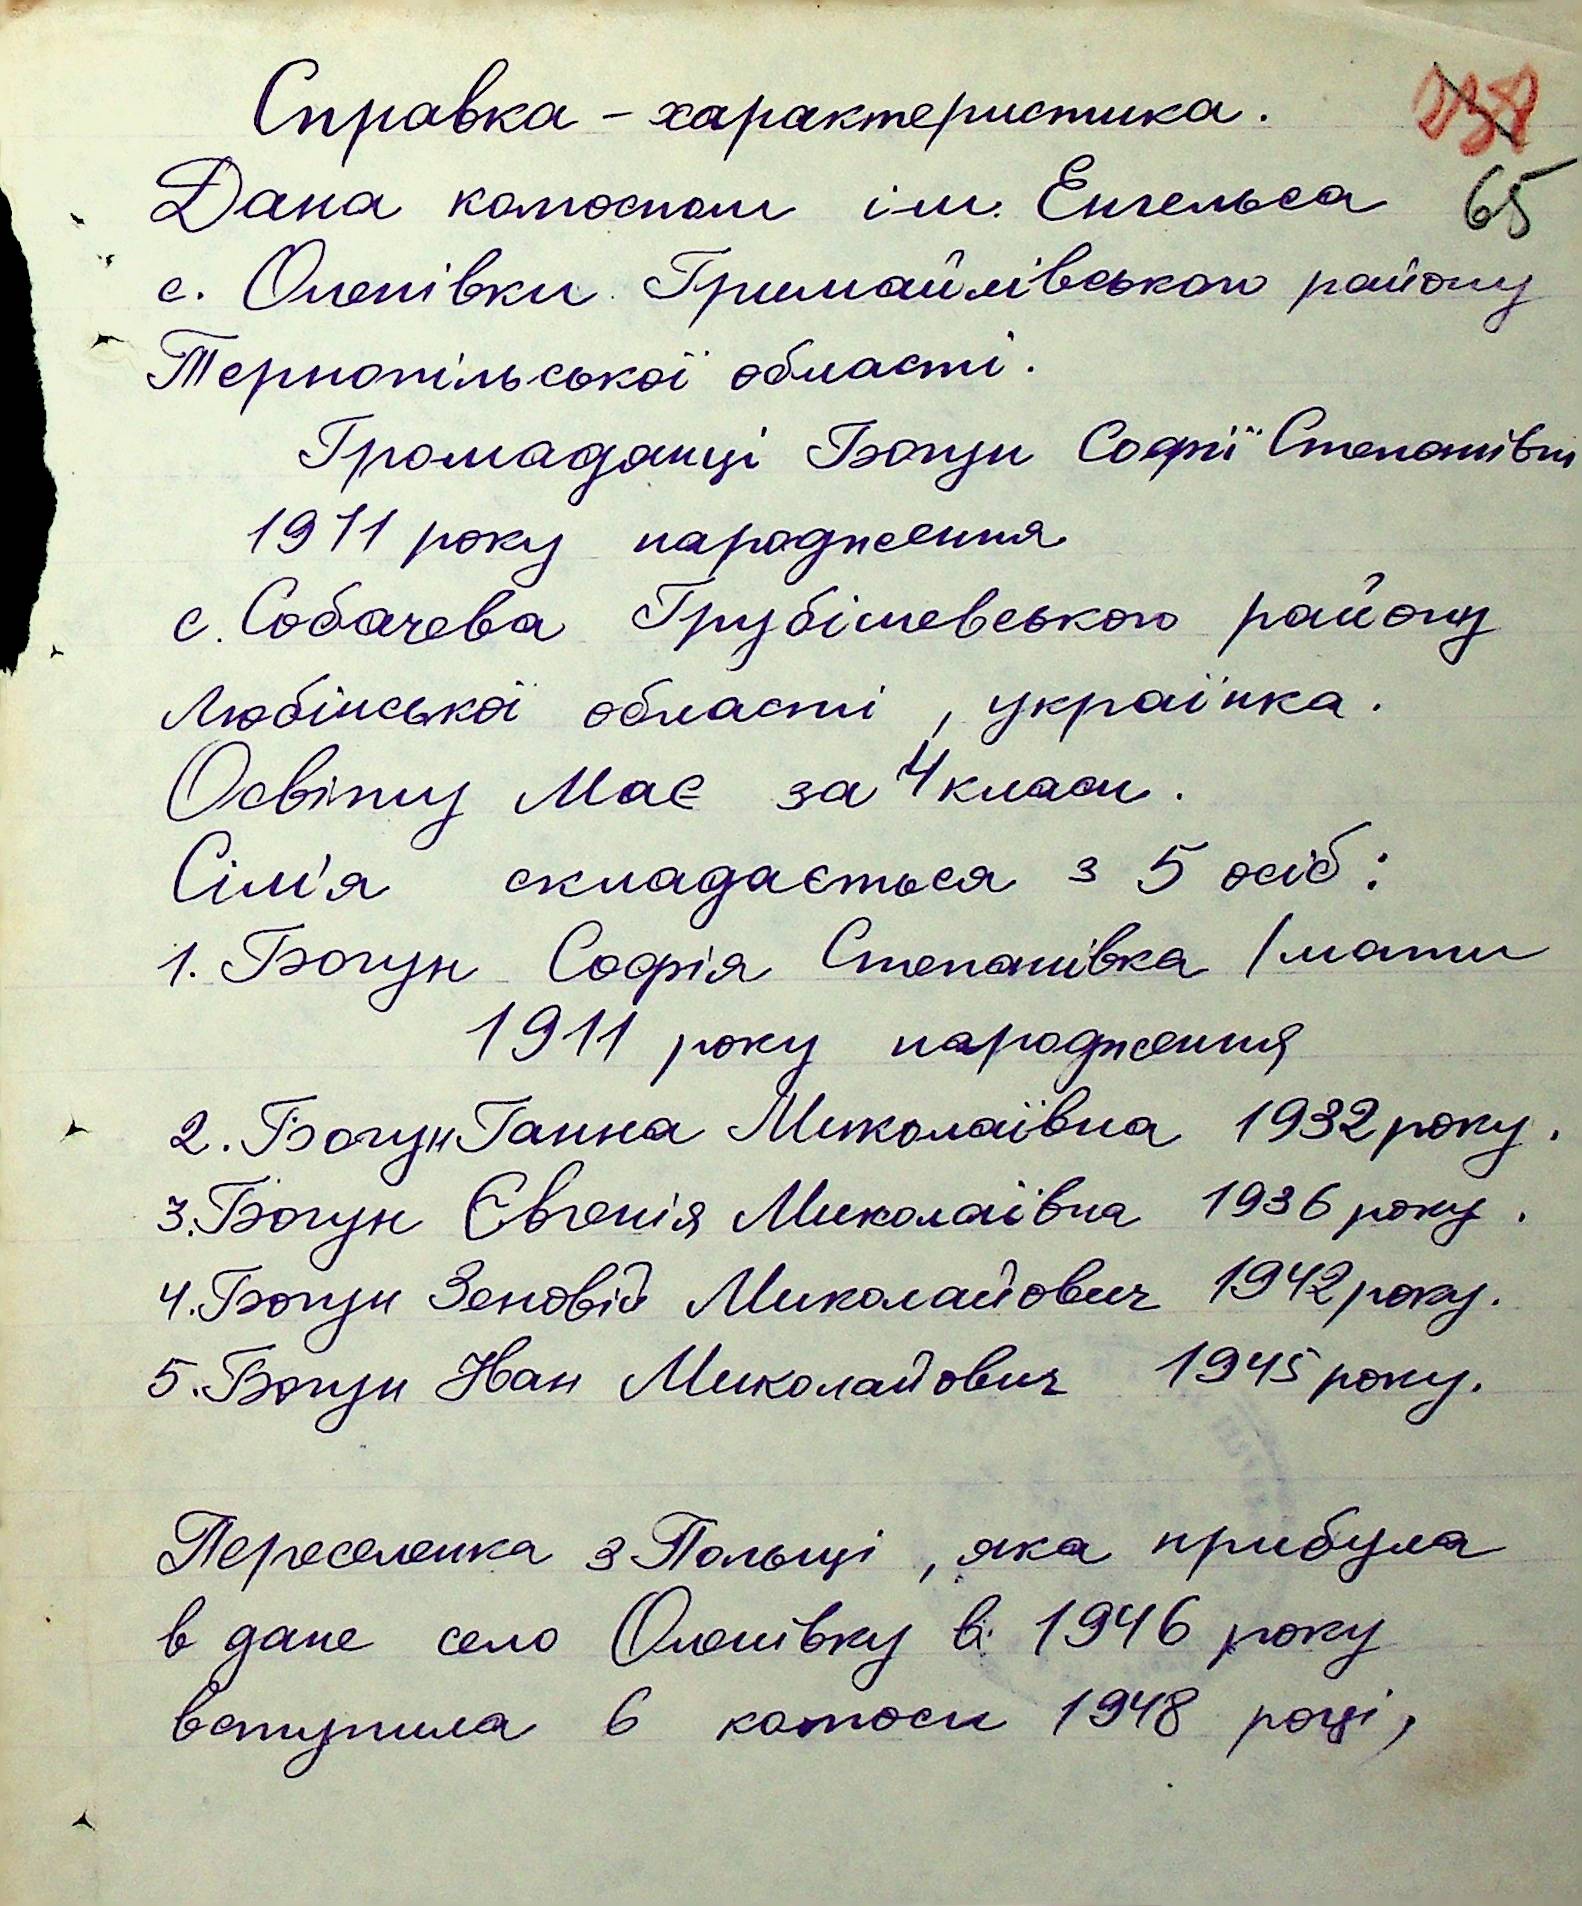 Справка - характеристика.
238
65
Дана колгоспом ім. Енгельса
с. Оленівки Гримайлівського району
Тернопільської області.
Громадянці Богун Софії Степанівні
1911 року народження
с. Собачева Грубішевського району
Любінської області, українка.
Освіту Має за 4 класи.
Сім'я складається з 5 осіб:
1. Богун Софія Степанівка / мати
1911 року народження
2. Богун Ганна Миколаївна 1932 року.
3. Богун Євгенія Миколаївна 1936 року.
4. Богун Зеновій Миколайович 1942 року.
5. Богун Іван Миколайович 1945 року.
Переселенка з Польщі, яка прибула
в дане село Оленівку в 1946 року
вступила в колгосп 1948 році,